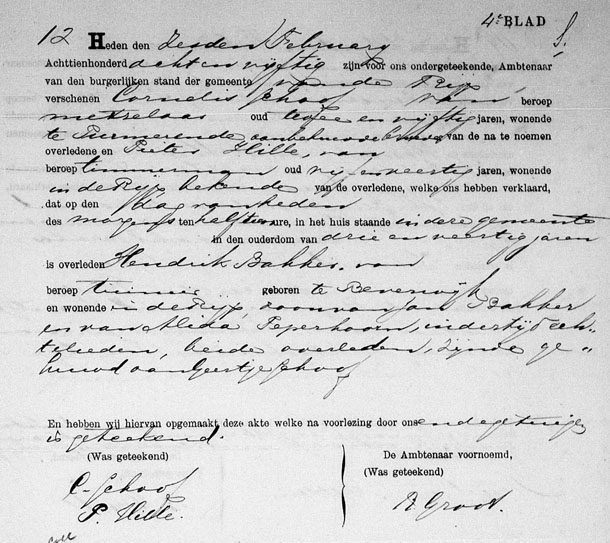 4e BLAD
12 Heden den zesden February
Achttienhonderd acht en vijftig zijn voor ons ondergeteekende, Ambtenaar
van den burgerlijken stand der gemeente van de Rijp
verschenen Cornelis Schoof van beroep
metselaar oud twee en vijftig jaren, wonende
te Purmerende aanbehuwdebroeder van de na te noemen
overledene en Pieter Hille, van
beroep timmerman oud vijf en veertig jaren, wonende
in de Rijp bekende van de overledene, welke ons hebben verklaard,
dat op den dag van heden
des morgens ten half tien ure, in het huis staande in deze gemeente
in den ouderdom van drie en veertig jaren
is overleden Hendrik Bakker, van
beroep geboren te Beverwijk
en wonende in de Rijp, zoon van Jan Bakker
en van Alida Peperhoorn, in der tijd echt-
telieden, beide overleden, zijnde ge-
huwd aan Geertje Schoof
En hebben wij hiervan opgemaakt deze akte welke na voorlezing door ons en de getuigen
is geteekend.
(Was geteekend)
C. Schoof
P. Hille.
De Ambtenaar voornoemd,
(Was geteekend)
R Groot.